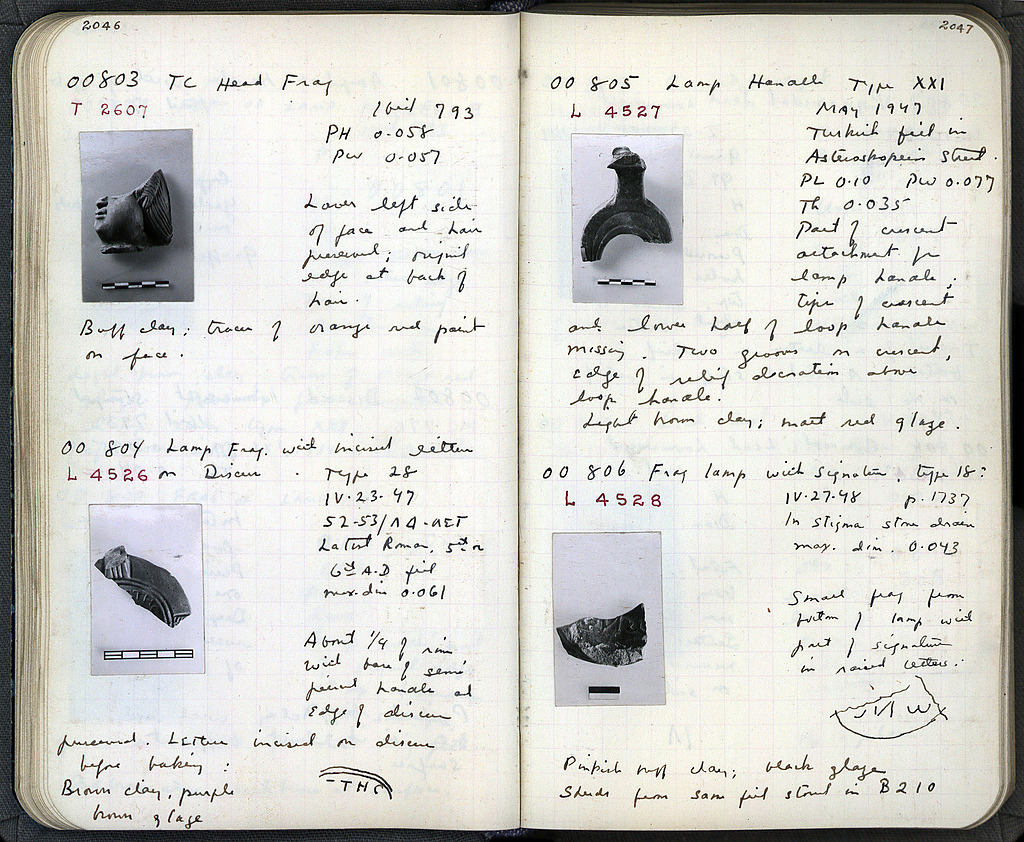 2046
OO 803 TC Head Frag
T 2607
Ibid 793
PH 0.058
PW 0.057
Lower left side
of face and hair
preserved; original
edge at back of
hair.
Buff clay; traces of orange red paint
on face.
OO 804 Lamp Frag. with incised letters
L 4526 on Discus. Type 28
IV.23.47
52-53/ΛΔ-ΛΕΤ
Latest Roman, 5th or
6th A.D fill
max. dim 0.061
About 1/4 of rim
with base of semi
pierced handle and
Edge of discus
preserved. Letters incised on discus
before baking:
-THC
Brown clay, purple
brown glaze
2047
OO 805 Lamp Handle Type XXI
L 4527
MAY 1947
Turkish fill in
Asteroskopeion Street.
PL 0.10 PW 0.077
Th 0.035
Part of crescent
attachment for
lamp handle;
tips of crescent
and lower half of loop handle
missing. Two grooves on crescent,
edge of relief decoration above
loop handle.
Light brown clay; matt red glaze.
OO 806 Frag lamp with signature, type 18?
L 4528
IV.27.48 p.1737
In stigma stone drain
max. dim. 0.043
Small frag from
bottom of lamp with
part of signature
in raised letters:
Pinkish buff clay; black glaze
Sherds from same fill stored in B 210